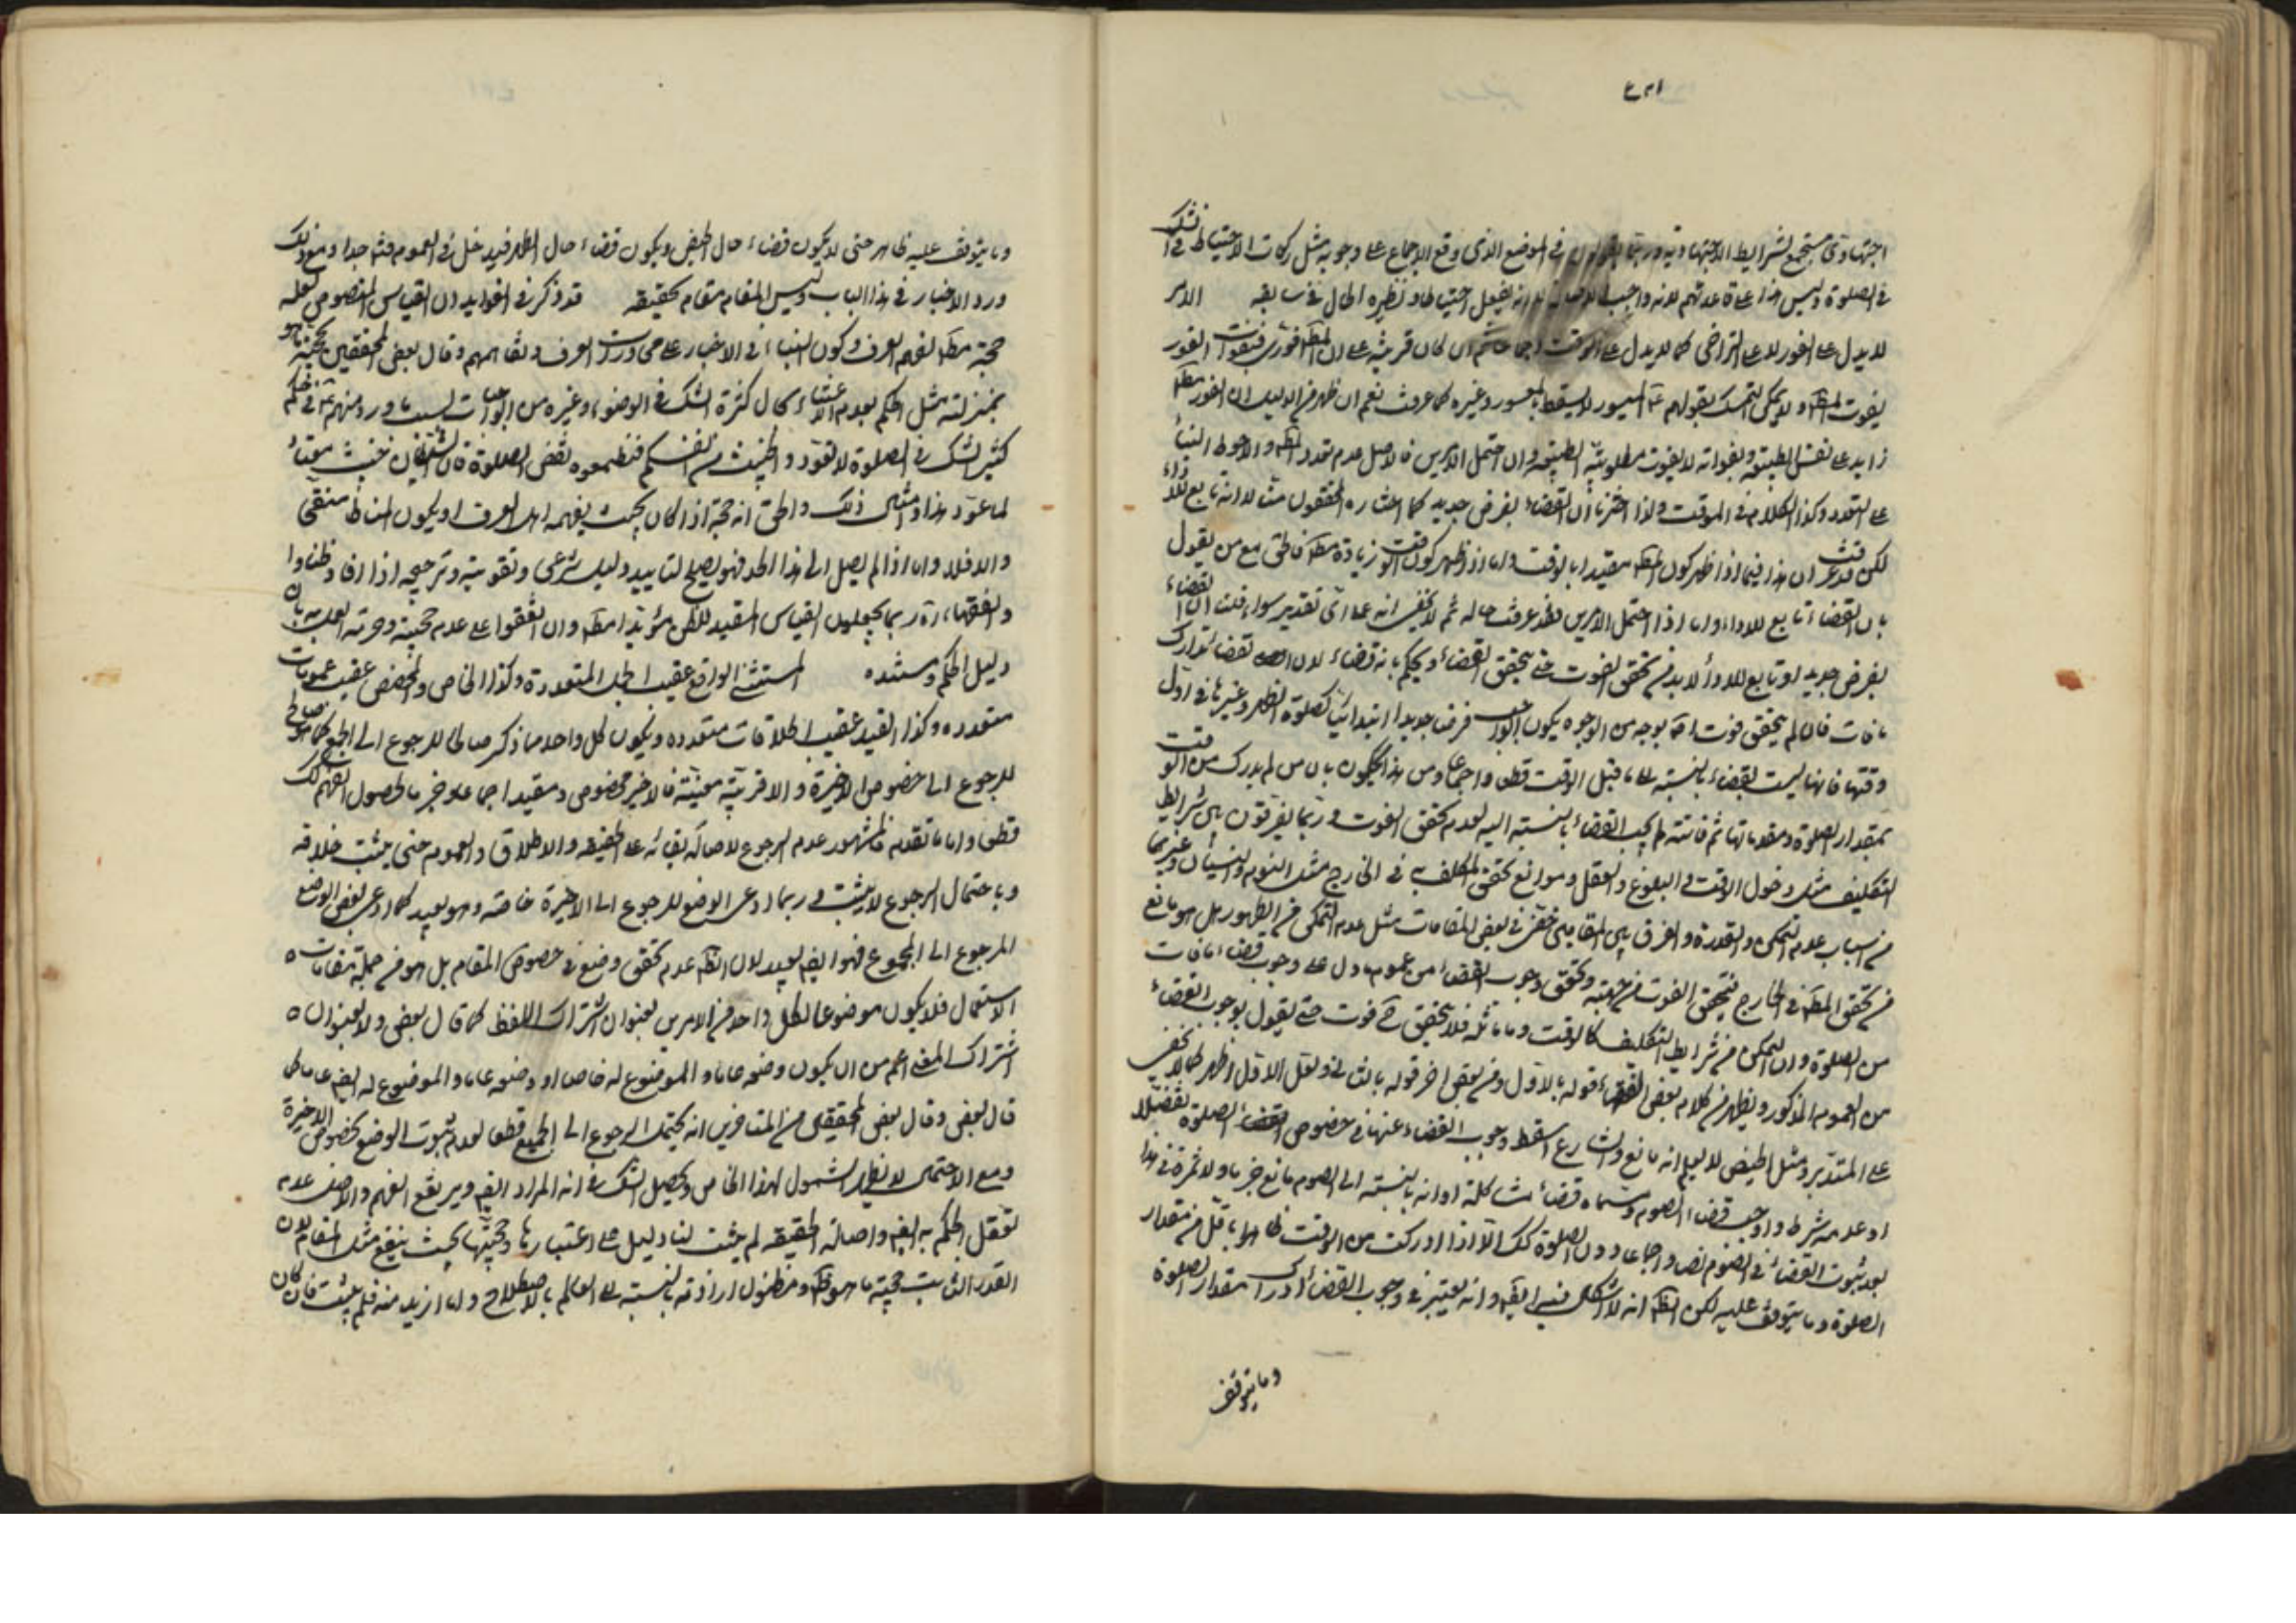 اجتهادی مستجمع لشرایط الاجتهاد فی الموضع الذی وقع الاجماع علی وجوبه مثل رکعات الاحتیاط فی الشک
فی الصلوة ولیس هذا عادة عندهم لانه واجب یفعل احتیاطا ونظیره الحال فی سابقه الامر
لا یدل علی الفور لا علی التراخی کما لا یدل علی الوقت نعم ان کان قرینة علی ان المط فوری فبفوات الفور
یفوت المط ولا یمکن التمسک بقولهم ع المیسور لا یسقط بالمعسور وغیره کما عرفت نعم ان ظهر من الدلیل ان الفور مط
زاید علی نفس الطبیعة وبفواته لا یفوت مطلوبیة الطبیعة وان احتمل الامرین فالاصل عدم تعدد المط والاحوط البناء
علی التعدد وکذا الکلام فی الموقت ولذا اخترنا ان القضاء بفرض جدید کما اختاره المحققون منا لا انه تابع للاداء
لکن قد عرفت ان هذا فیما اذا ظهر کون المط مقیدا بالوقت واما اذا ظهر کون الوقت زیادة مط فالحق مع من یقول
بان القضاء تابع للاداء واما اذا احتمل الامرین فقد عرفت حاله ثم لا یخفی انه علی ای تقدیر سواء قلنا ان القضاء
بفرض جدید او تابع للاداء لا بد من تحقق الفوت حتی یتحقق القضاء ویحکم بانه قضاء لان القضاء تدارک
ما فات فان لم یتحقق فوت اصلا بوجه من الوجوه یکون الواجب فرضا جدیدا ابتدائیا کصلوة الظهر وغیرها فی اول
وقتها فانها لیست بقضاء بالنسبة الی ما قبل الوقت قطعا واجماعا ومن هذا یحکمون بان من لم یدرک من الوقت
بمقدار الصلوة ومقدماتها ثم فاتته لم یجب القضاء بالنسبة الیه لعدم تحقق الفوت وربما یفرقون بین شرایط
التکلیف مثل دخول الوقت والبلوغ والعقل وموانع تحقق المکلف به فی الخارج مثل النوم والنسیان وغیرهما
من اسباب عدم التمکن والقدرة والفرق بین المقامین خفی فی بعض المقامات مثل عدم التمکن من الطهور هل هو مانع
من تحقق المط فی الخارج فیتحقق الفوت من جهته وتحقق وجوب القضاء من عموم ما دل علی وجوب قضاء ما فات
من الصلوة او ان التمکن من شرایط التکلیف کالوقت وما ماثله فلا یتحقق ح فوت حتی یقول بوجوب القضاء
من العموم المذکور ویظهر من کلام بعض الفقهاء قوله بالاول ومن بعض اخر قوله بالثانی ولعل الاول اظهر کما لا یخفی
علی المتدبر ومثل الحیض لا یعلم انه مانع والشارع اسقط وجوب القضاء عنها فی خصوص الصلوة تفضلا
او عدمه شرط واوجب قضاء الصوم وسماه قضاء مشاکلة او انه بالنسبة الی الصوم مانع جزما ولا ثمرة فی هذا
بعد ثبوت القضاء فی الصوم نصا واجماعا دون الصلوة کک الا اذا ادرکت من الوقت باقل من مقدار
الصلوة وما یتوقف علیه لکن الظ انه لا اشکال فیه ایض وانه یعتبر فی وجوب القضاء ادراک مقدار الصلوة
وما یتوقف
وما یتوقف علیه طاهر حتی لا یکون قضاء حال الحیض ویکون قضاء حال الطهر فیدخل فی العموم فتدبر جدا ومع ذلک
ورد الاخبار فی هذا الباب ولیس المقام مقام تحقیقه قد ذکر فی الفواید ان القیاس المنصوص العلة
حجة مط لفهم العرف وکون البناء فی الاخبار علی محاورات العرف وتفاهمهم وقال بعض المحققین بحجیة ما هو
بمنزلته مثل الحکم بعدم الاعتناء حال کثرة الشک فی الوضوء وغیره من الواجبات لسبب ما ورد منهم ع فی حکم
کثیر الشک فی الصلوة لا تعود والخبیث من انفسکم فتطمعوه نقض الصلوة فان الشیطان خبیث معتاد
لما عود هذا وامثال ذلک والحق انه حجة اذا کان بحیث یفهمه اهل العرف او یکون المناط منقحا
والا فلا واما اذا لم یصل الی هذا الحد فهو یصلح لتایید دلیل شرعی وتقویته وترجیحه اذا افاد ظنا والفقهاء ره
ربما یجعلون القیاس المفید للظن مؤیدا مط وان اتفقوا علی عدم حجیته وحرمة العمل به بان
دلیل الحکم ومستنده المستثنی الواقع عقیب الجمل المتعددة وکذا الخاص والمخصص عقیب عمومات
متعدده وکذا القید عقیب اطلاقات متعدده ویکون کل واحد مما ذکر صالحا للرجوع الی الجمع کما هو صالح
للرجوع الی خصوص الاخیرة ولا قرینة معینة فالاخیر مخصوص ومقید اجماعا وجزما لحصول الفهم کک
قطعا واما ما تقدم فالمشهور عدم الرجوع لاصالة بقائه علی الحقیقه والاطلاق والعموم حتی یثبت خلافه
وباحتمال الرجوع لا یثبت وربما ادعی الوضع للرجوع الی الاخیرة خاصة وهو بعید کما ادعی بعض الوضع
للرجوع الی المجموع فهو ایض بعید لان الظ عدم تحقق وضع فی خصوص المقام بل هو من جملة مقامات
الاستعمال فلا یکون موضوعا لکل واحد من الامرین بعنوان اشتراک اللفظ کما قال بعض ولا بعنوان
اشتراک المعنی اعم من ان یکون وضعه عاما والموضوع له خاصا او وضعه عاما والموضوع له ایض عاما کما
قال بعض وقال بعض المحققین من المتاخرین انه یحتمل الرجوع الی الجمیع قطعا لعدم ثبوت الوضع بخصوص الاخیرة
ومع الاحتمال لا یظهر الشمول لهذا الخاص ویحصل الشک فی انه المراد ایض ویرتفع الفهم والاصل عدم
تعقل الحکم به ایض واصالة الحقیقه لم یثبت لنا دلیل علی اعتبارها وحجیتها بحیث ینفع مثل المقام لان
القدر الثابت حجیته ما هو ظ ومظنون ارادته بالنسبة الی العالم بالاصطلاح واما ازید منه فلم یثبت فان کان